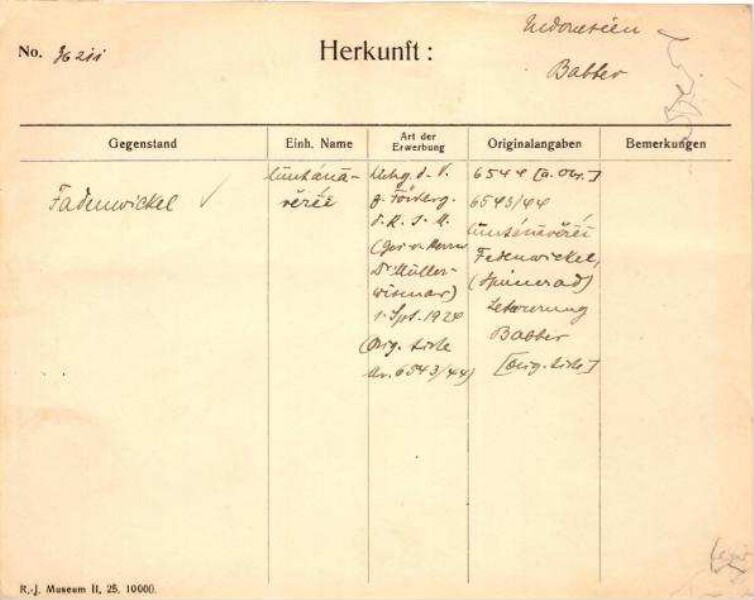 No. 36211
Herkunft:
Indonesien
Babber
Gegenstand
Einh. Name
Art der Erwerbung
Originalangaben
Bemerkungen
Fadenwickel
d. V.
z. Förderg.
d. R. J. M.
(Ges. v. Herrn
Dr Müller-
wismar)
1. Spt. 1924
(Orig. Liste
Nr. 6543/44)
6544 [a. Obj.]
6543/44
Fadenwickel,
(Spinnrad)
Babber
[Orig. Liste]
R.-J. Museum II, 25. 10000.